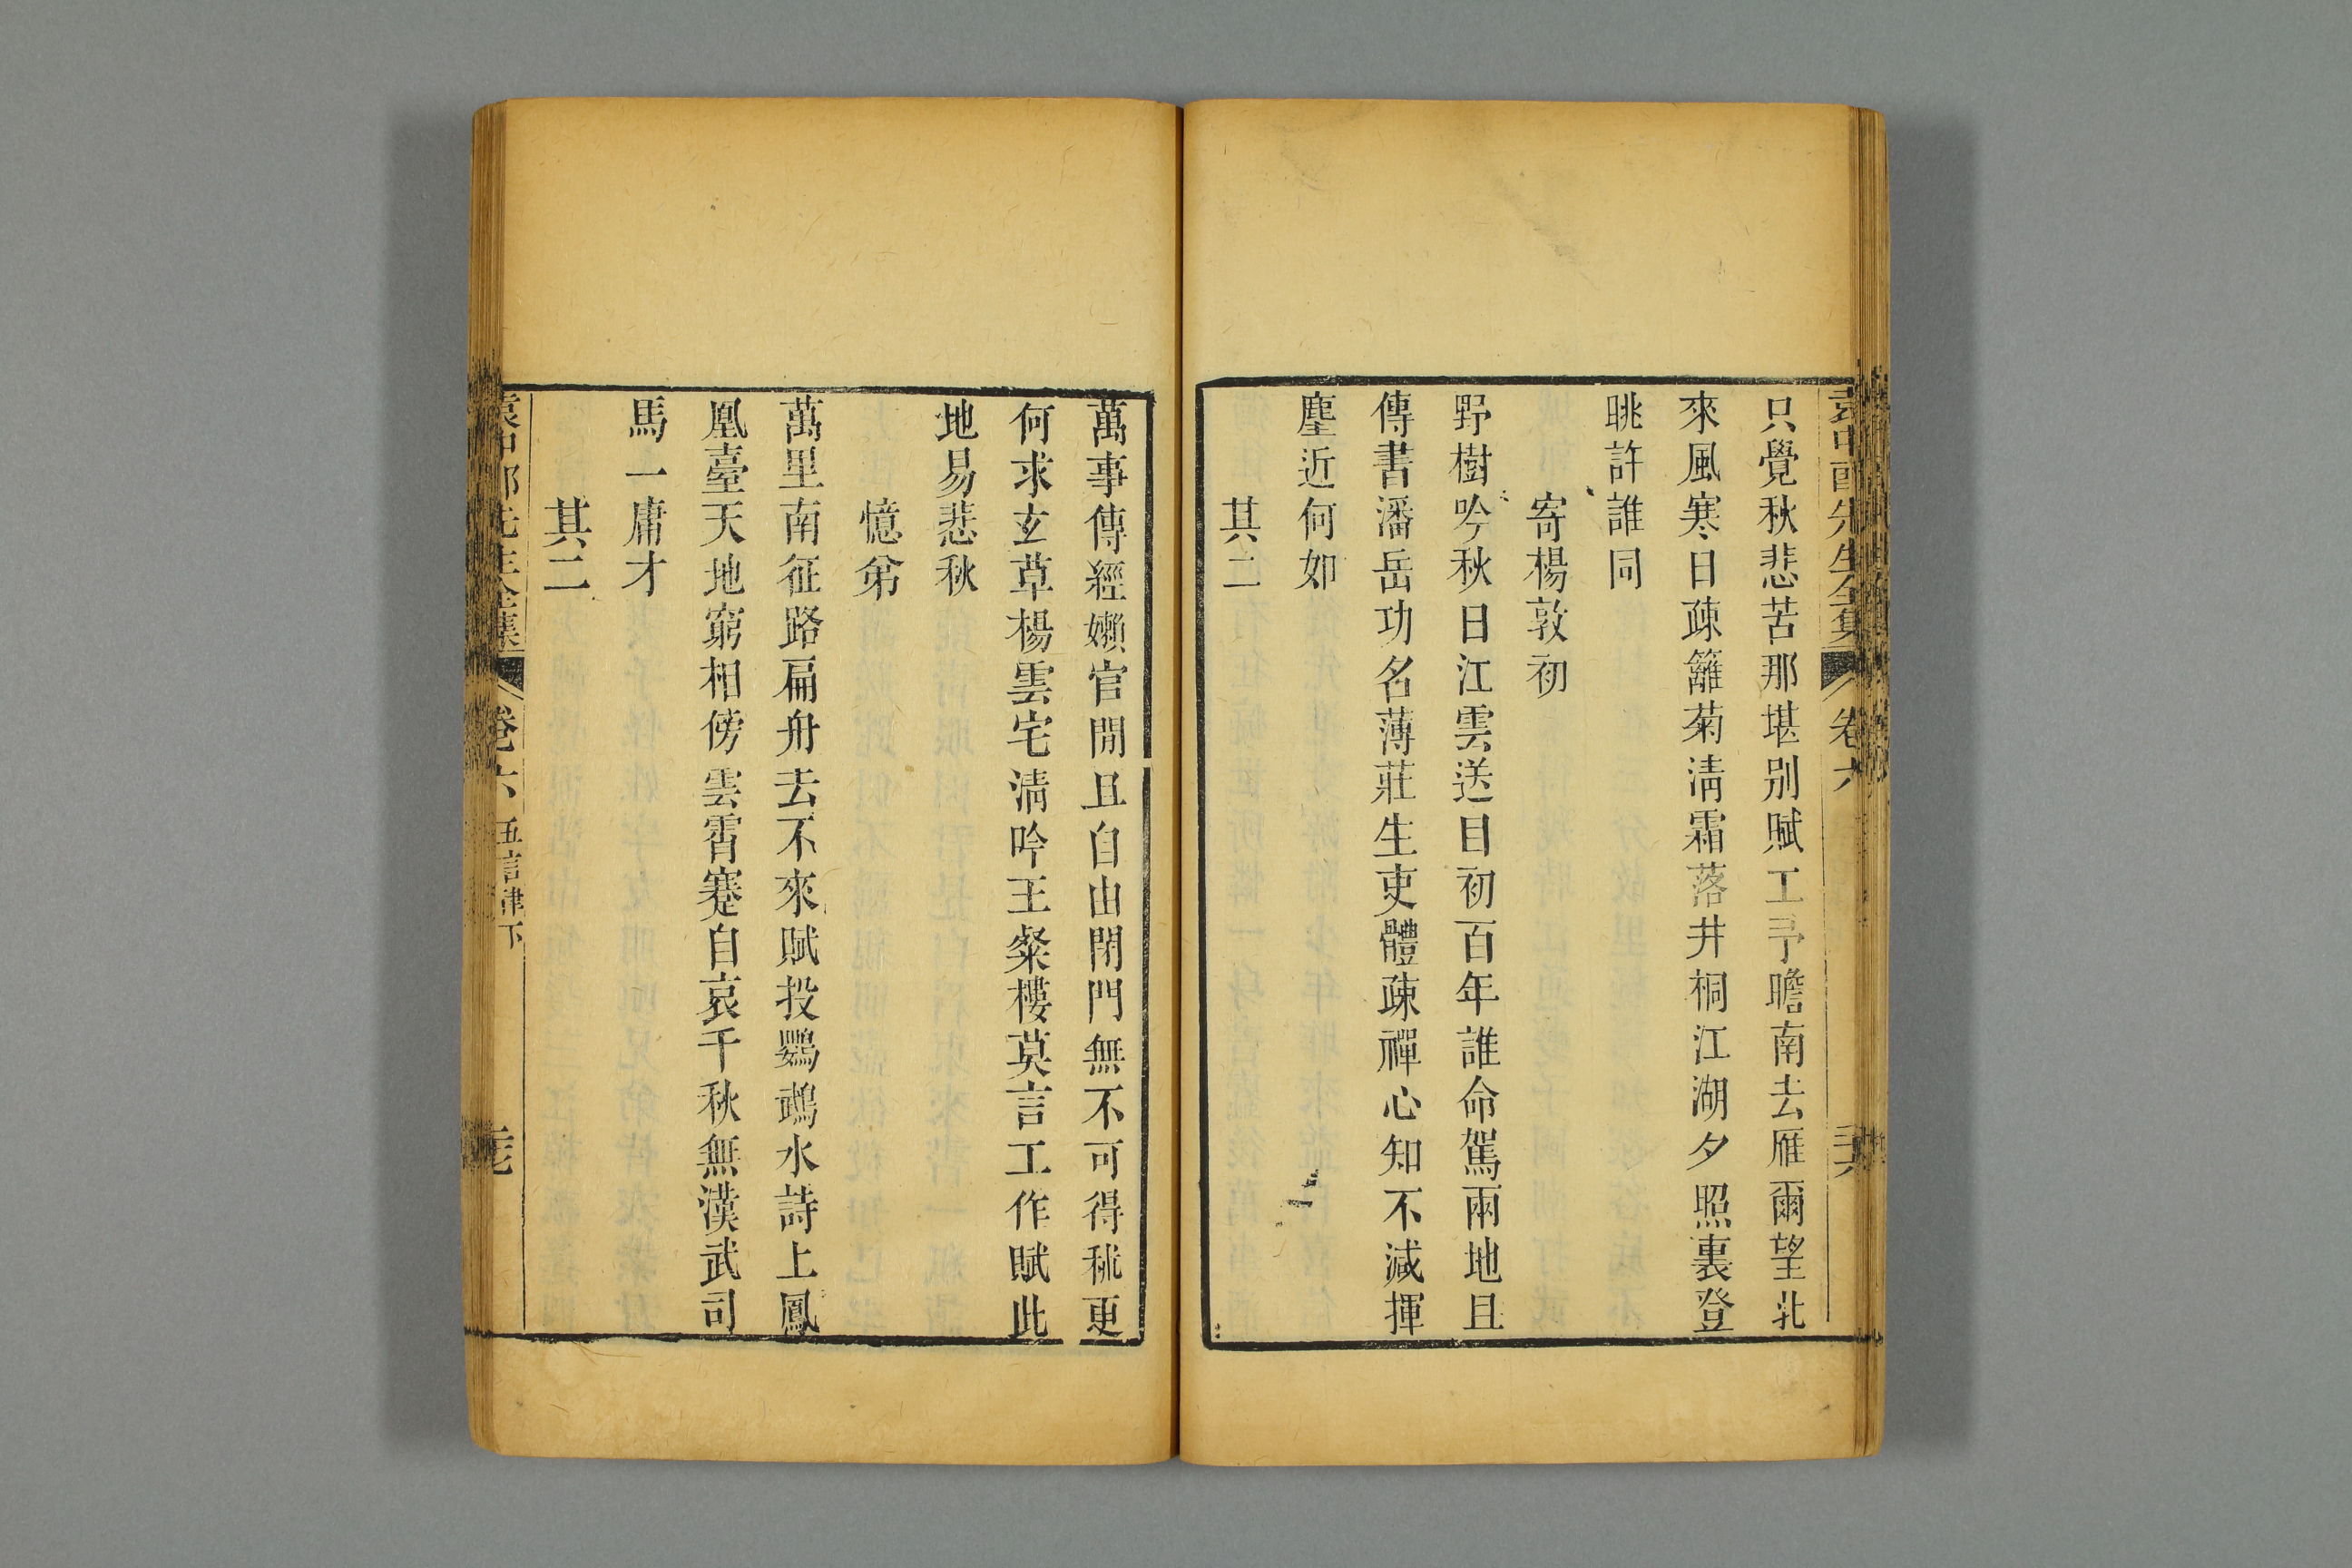 袁中郎先生全集
卷六
只覺秋悲苦那堪別賦工予瞻南去雁爾望北
來風寒日疎籬菊清霜落井桐江湖夕照裏登
眺許誰同
寄楊敦初
野樹吟秋日江雲送目初百年誰命駕兩地且
傳書潘岳功名薄莊生吏體疎禪心知不減揮
塵近何如
其二
萬事傳經嬾官閒且自由閉門無不可得秫更
何求玄草楊雲宅清吟王粲樓莫言工作賦此
地易悲秋
憶弟
萬里南征路扁舟去不來賦投鸚鵡水詩上鳳
凰臺天地窮相傍雲霄蹇自哀千秋無漢武司
馬一庸才
其二
卷六
五言律下